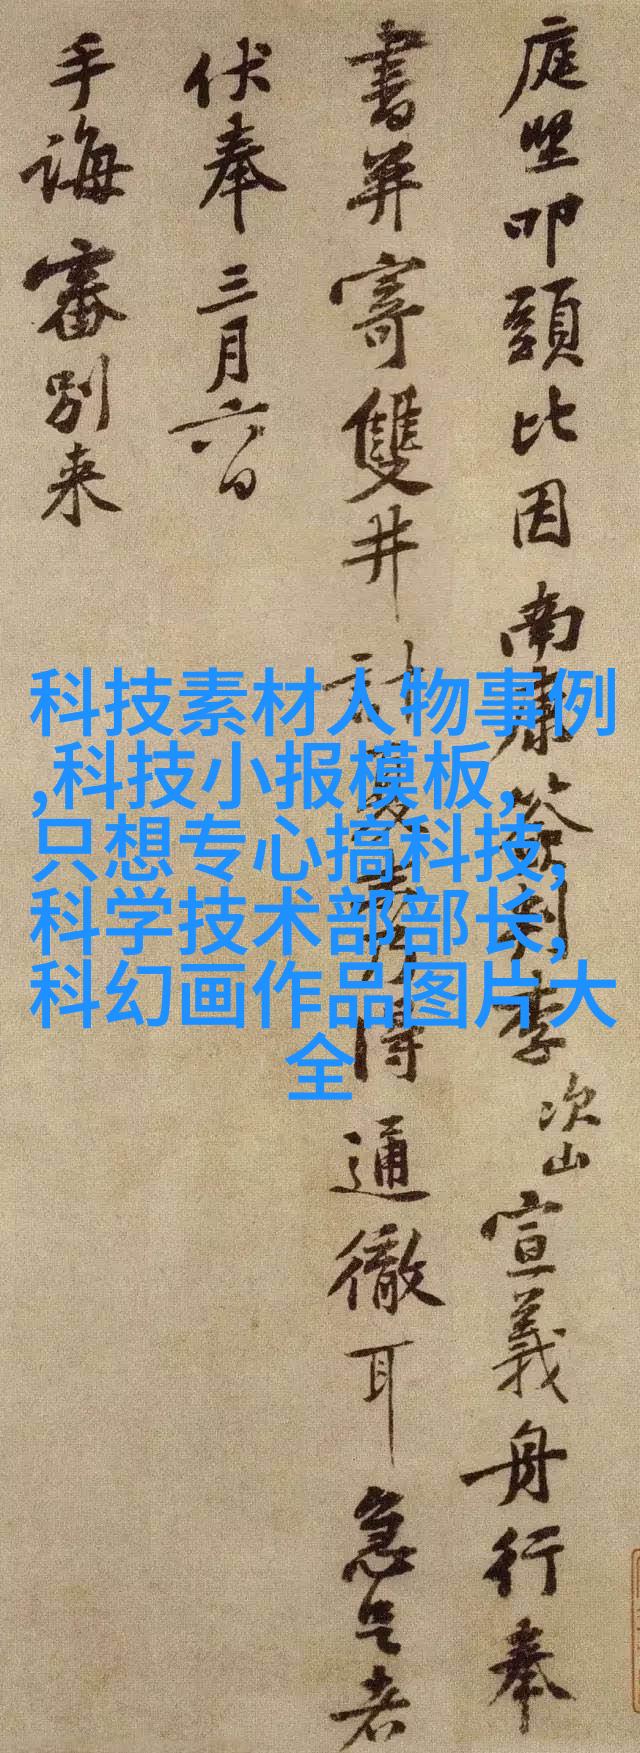 庭堅叩頭比因南康簽判李次山宣義舟行奉
書并寄雙井計得通徹耳急足者
伏奉三月六日
手誨審別来
科技素材人物事例
,科技小报模板,
只想专心搞科技,
科学技术部部长,
科幻画作品图片大
全